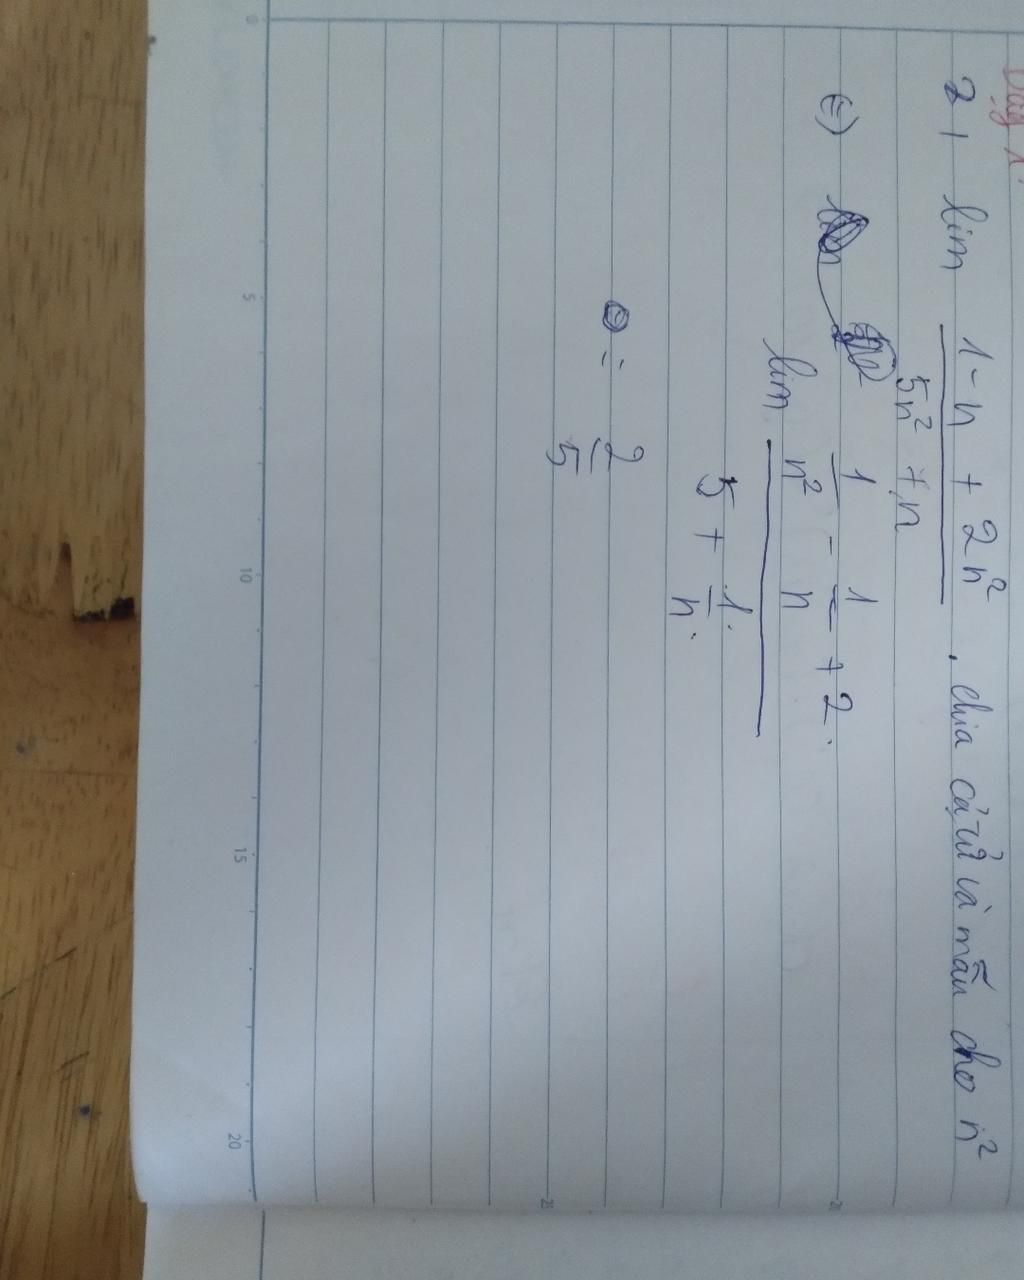 2) lim (1 - n + 2n²) / (5n² + n) , chia cả tử và mẫu cho n²
(=) lim (1/n² - 1/n + 2) / (5 + 1/n)
= 2/5
0
5
10
15
20